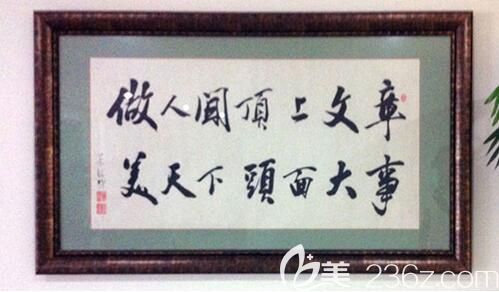 做人間頂上文章
美天下頭面大事
美 236z.com